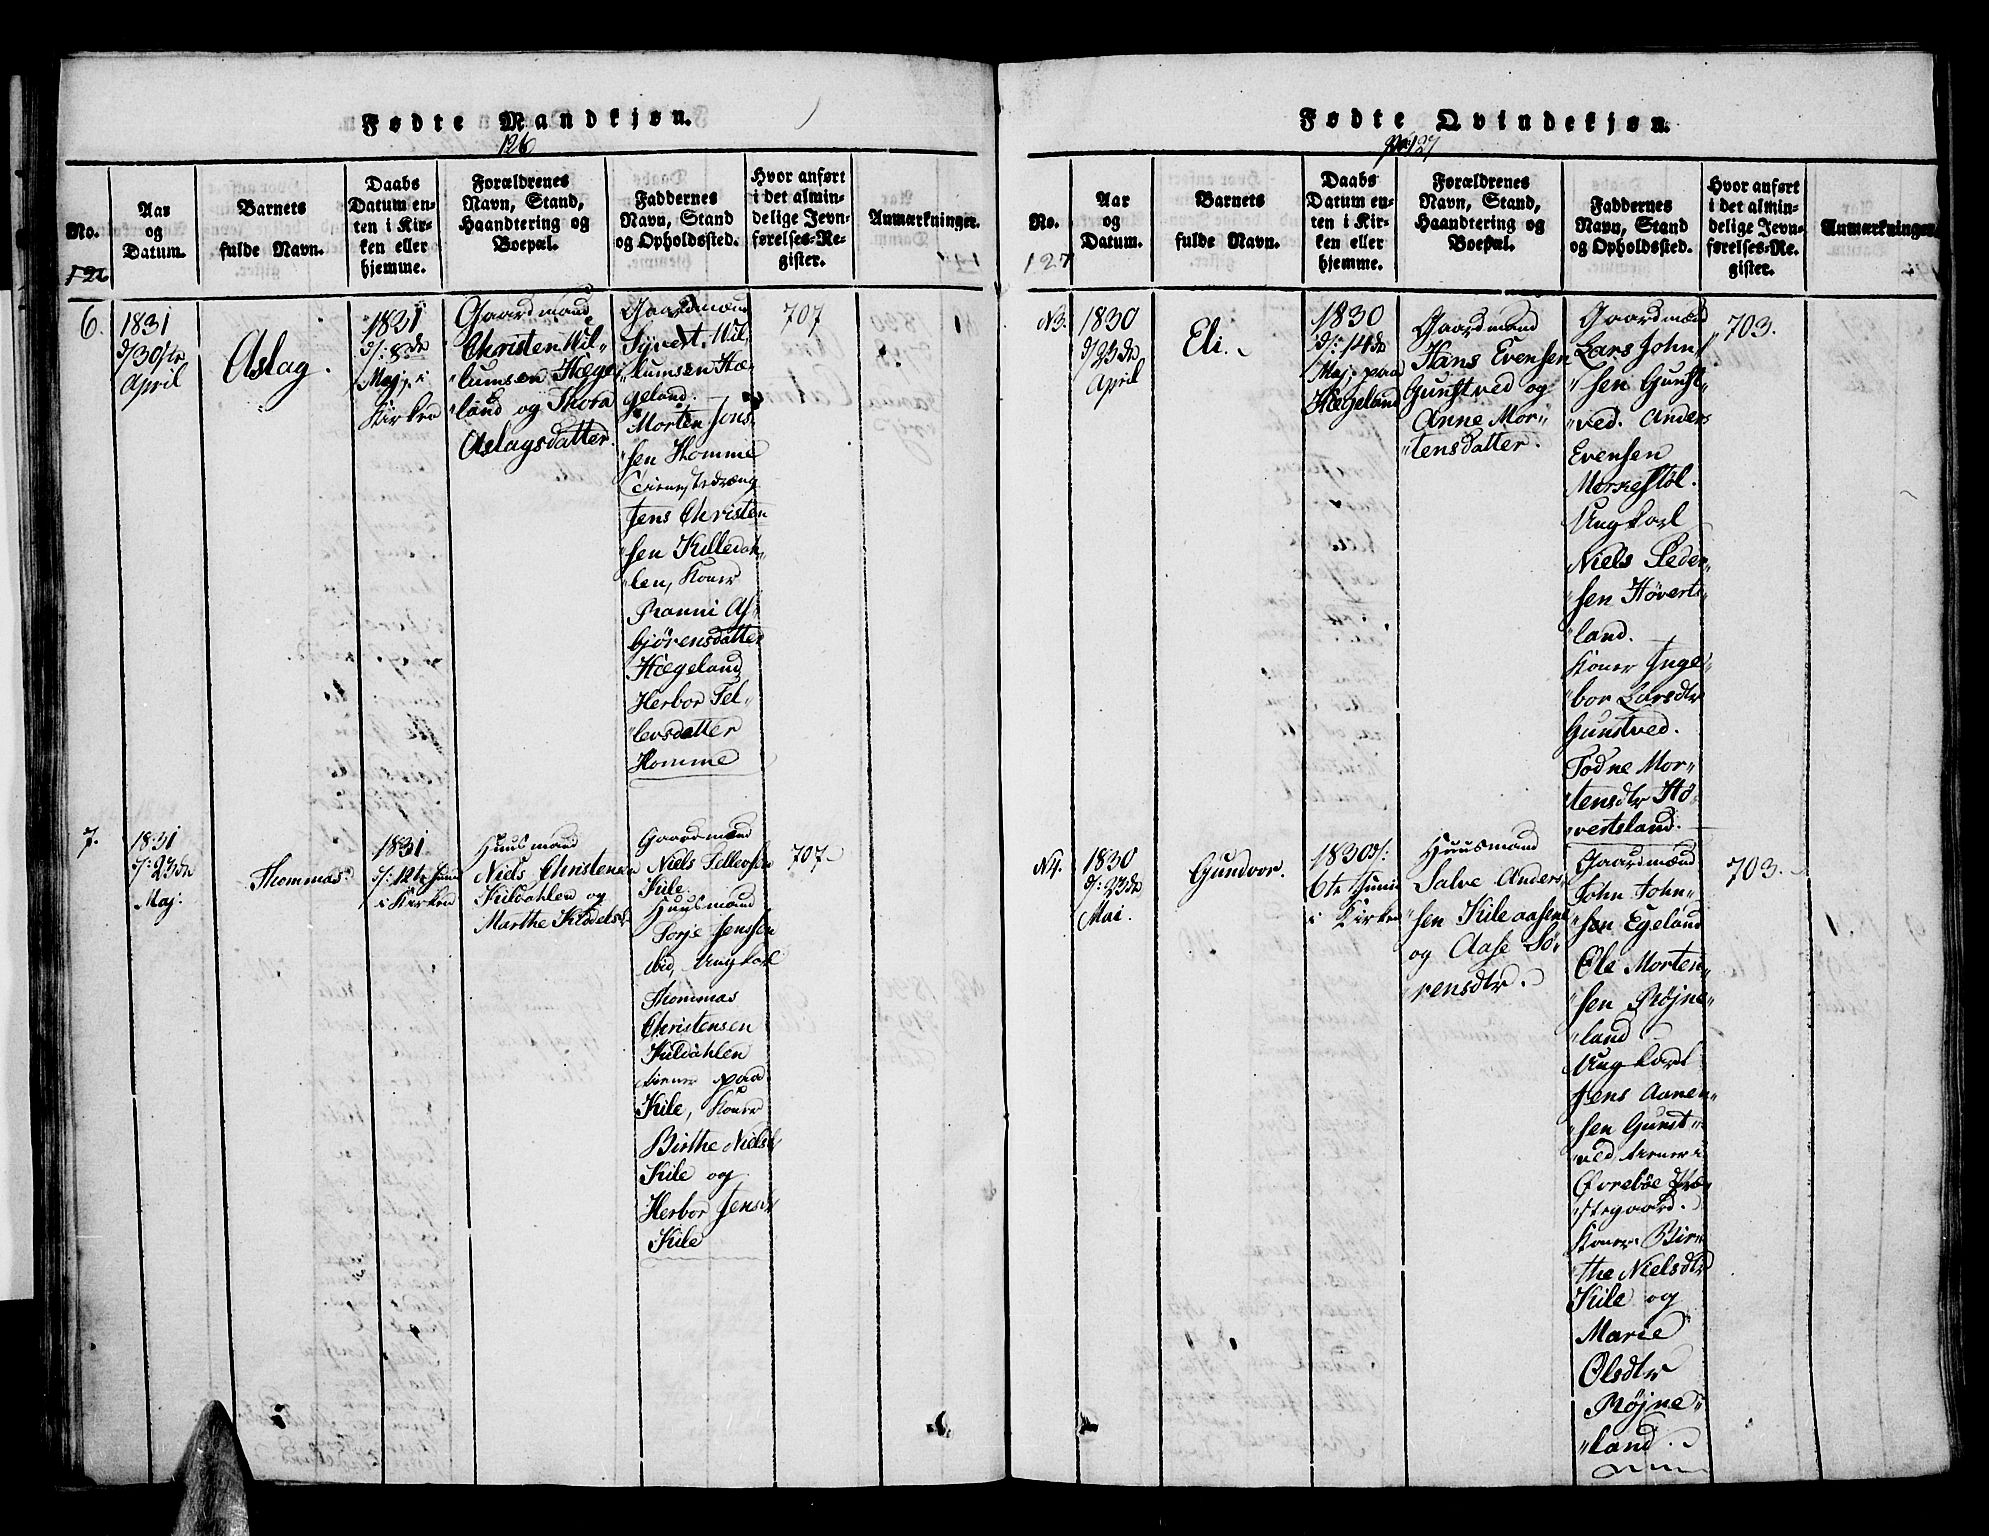 Fødte Mandkjøn.
126
No.
Aar
og
Datum.
Barnets
fulde Navn.
Daabs
Datum en-
ten i Kir-
ken eller
hjemme.
Forældrenes
Navn, Stand,
Haandtering og
Boepæl.
Faddernes
Navn, Stand
og Opholdssted.
Hvor anført
i det almin-
delige Jevn-
førelses-Re-
gister.
Anmærkninger.
126
6.
1831
d/30te
April
Aslag.
1831
d: 8de
Maj, i
Kirken
Gaardmand
Christen Wil-
lumsen Hæge-
land og Thora
Aslagsdatter.
Gaardmænd
Syvert Wil-
lumsen Hæ-
geland.
Morten Jens-
sen Homme
Tienestedræng
Jens Christen
sen Killedah-
len, Koner
Ranni As-
bjørensdatter
Hægeland
Herbor Tel-
levsdatter
Homme
707
7.
1831
d: 23de
Maj.
Thommas.
1831
d: 12te Juni
i Kirken
Huusmand
Niels Christensen
Kildahlen og
Marthe Kittelsdr
Gaardmand
Niels Tellevsen
Kile.
Huusmand
Torje Jenssen
ibid, Ungkarl
Thommas
Christensen
Kildahlen
tiener paa
Kile, Koner
Birthe Nielsdr
Kile og
Herbor Jensdr
Kile
707
Fødte Qvindekjøn.
127
No.
Aar
og
Datum.
Barnets
fulde Navn.
Daabs
Datum en-
ten i Kir-
ken eller
hjemme.
Forældrenes
Navn, Stand,
Haandtering og
Boepæl.
Faddernes
Navn, Stand
og Opholdssted.
Hvor anført
i det almin-
delige Jevn-
førelses-Re-
gister.
Anmærkninger.
127
N3.
1830
d/23de
April
Eli.
1830
d: 14de
Maj paa
Hægeland
Gaardmand
Hans Evensen
Gunstved og
Anne Mor-
tensdatter.
Gaardmænd
Lars Johns-
sen Gunst-
ved. Anders
Evensen
Morkestøl.
Ungkarl
Niels Peder-
sen Høverts-
land.
Koner Inge-
bor Larsdtr
Gunstved.
Todne Mor-
tensdtr Hø-
vertsland.
703.
N4.
1830
d: 23de
Mai.
Gundvor.
1830 d:
6te Juni
i Kirken
Huusmand
Salve Anders-
sen Kileaasene
og Aase Sø-
rensdtr.
Gaardmænd
John John-
sen Egeland
Ole Morten-
sen Røjne-
land
Ungkarl
Jens Aanen-
sen Gunst-
ved, tiener i
Øvrebøe Præ-
stegaard.
Koner Bir-
the Nielsdtr
Kile og
Marie
Olsdtr
Røjne-
land.
703.